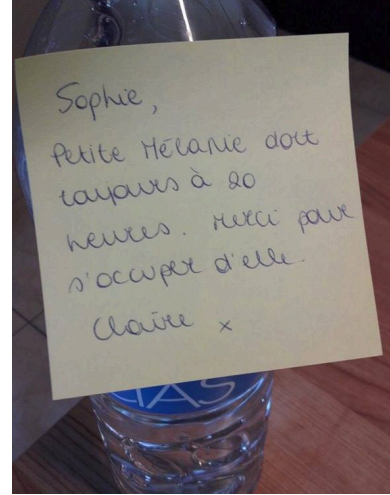 Sophie,
Petite Mélanie dort
toujours à 20
heures. Merci pour
s'occuper d'elle.
Claire x